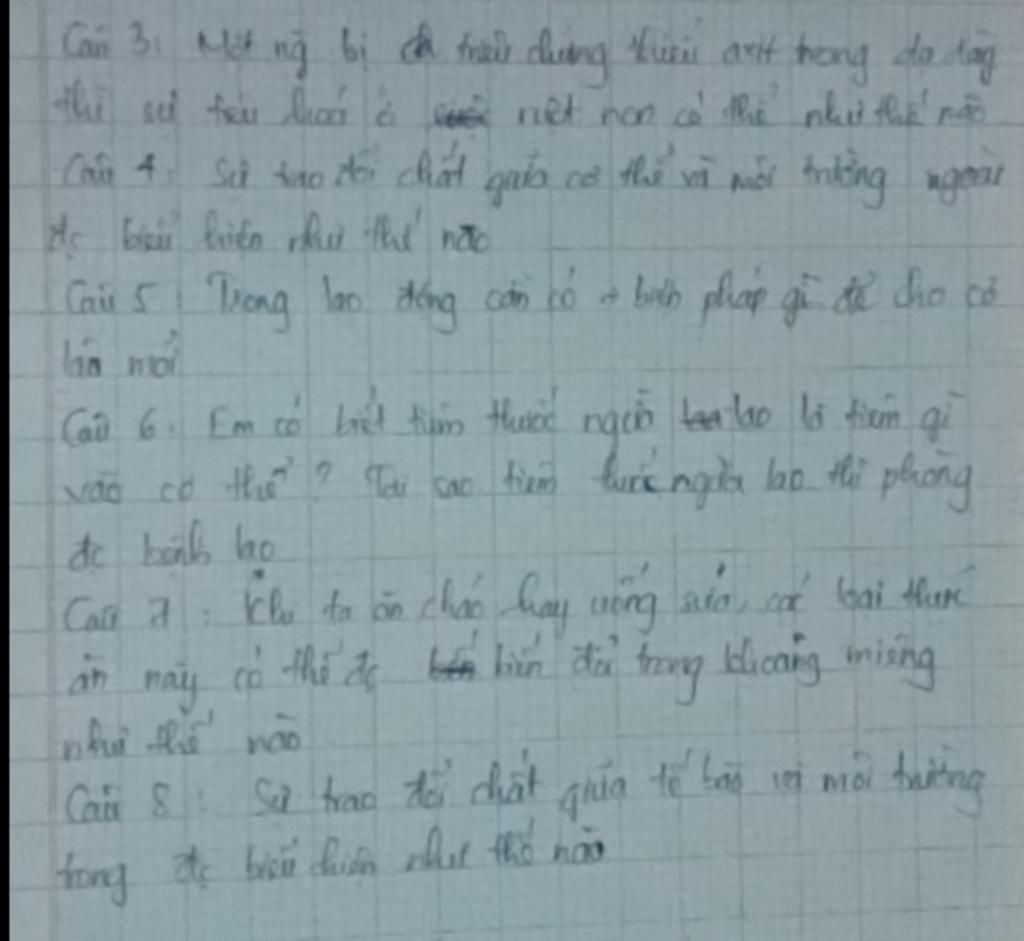 Câu 3: Một ng bị triệu chứng thiếu axit trong dạ dày
thì sự tiêu hoá ở ruột non có thể như thế nào
Câu 4: Sự trao đổi chất giữa cơ thể và môi trường ngoài
đc biểu hiện như thế nào
Câu 5: Trong lao động cần có biện pháp gì để cho cơ
lâu mỏi
Câu 6: Em có biết tiêm thuốc ngừa lao là tiêm gì
vào cơ thể? Tại sao tiêm thuốc ngừa lao thì phòng
đc bệnh lao
Câu 7: Khi ta ăn cháo hay uống sữa, các loại thức
ăn này có thể đc biến đổi trong khoang miệng
như thế nào
Câu 8: Sự trao đổi chất giữa tế bào với môi trường
trong đc biểu hiện như thế nào